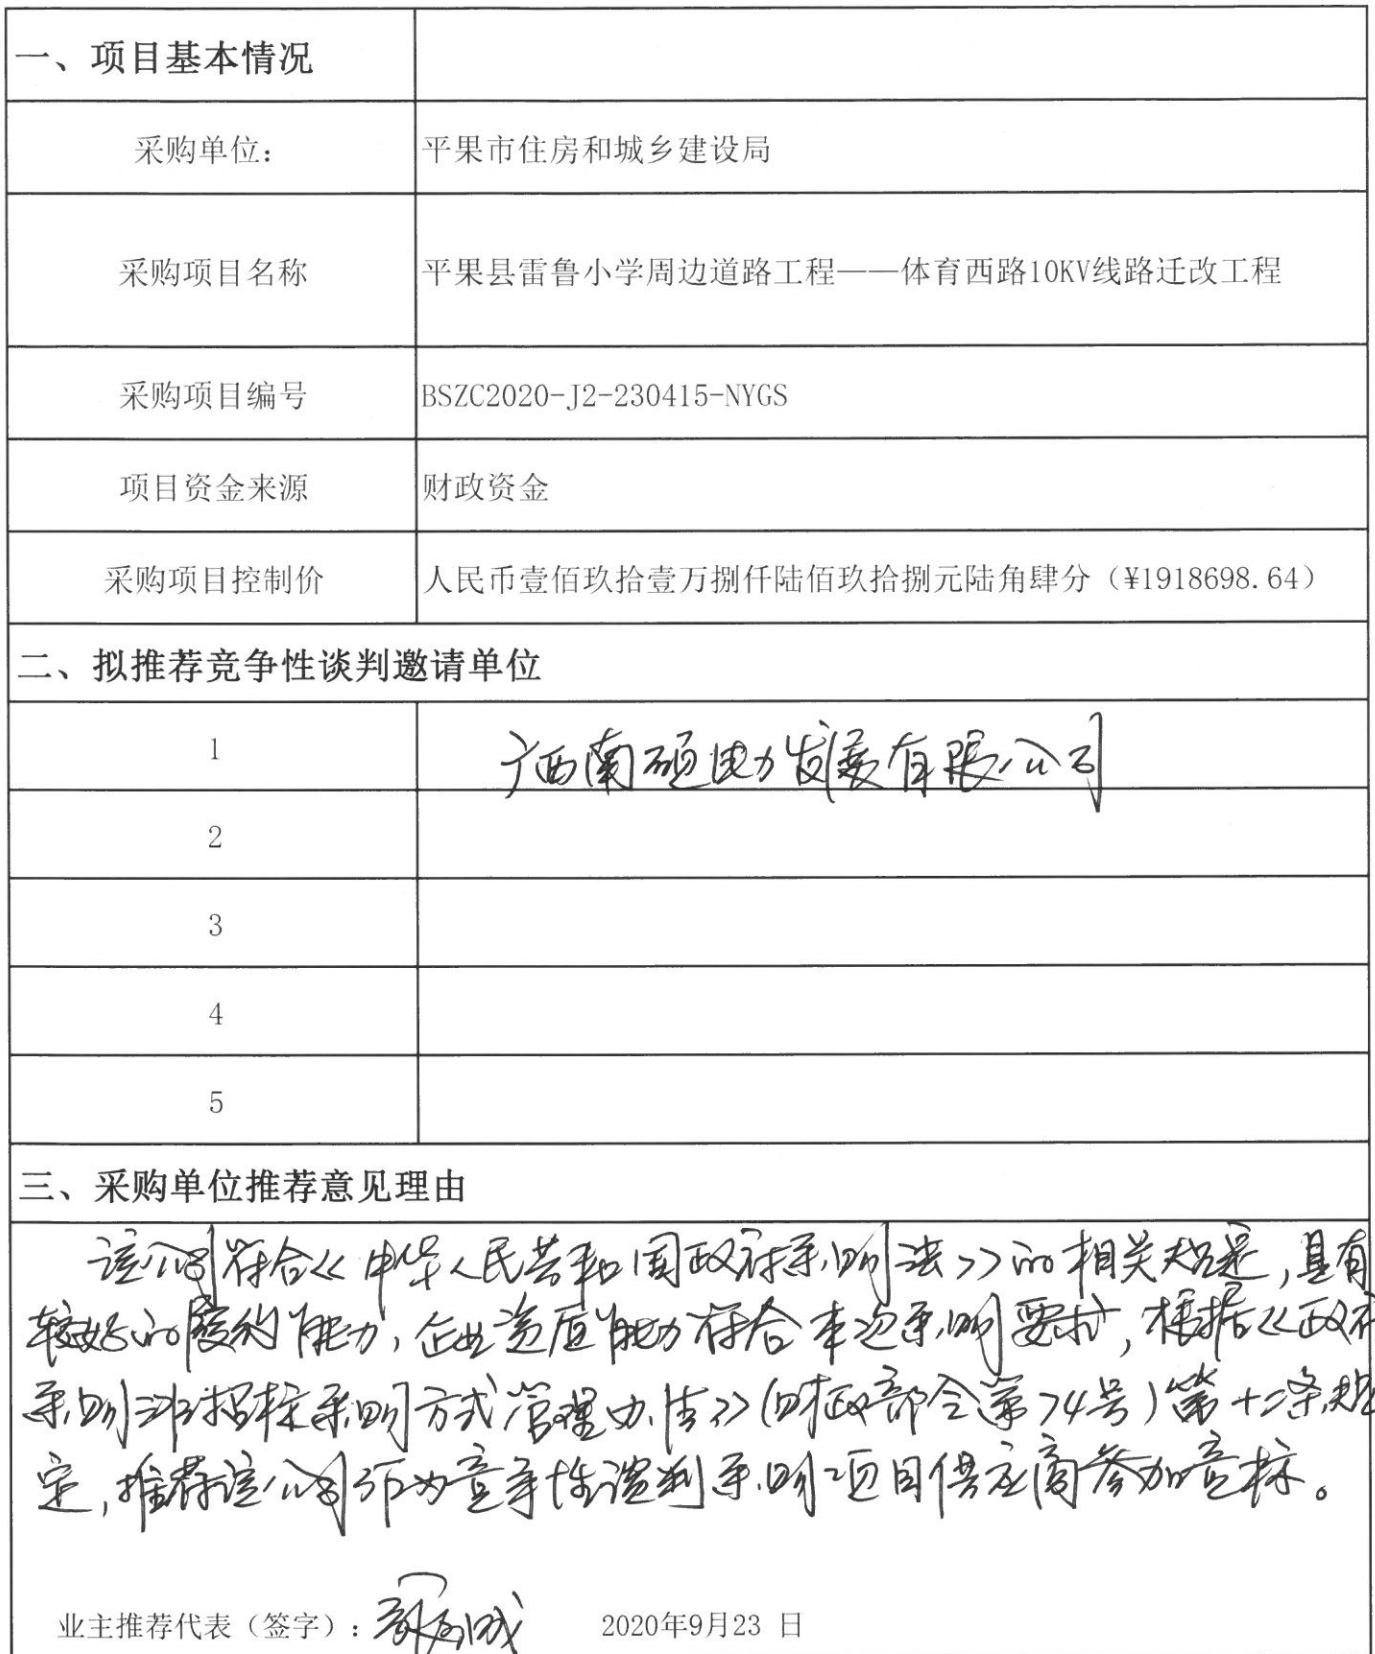 一、项目基本情况
采购单位： 平果市住房和城乡建设局
采购项目名称 平果县雷鲁小学周边道路工程——体育西路10KV线路迁改工程
采购项目编号 BSZC2020-J2-230415-NYGS
项目资金来源 财政资金
采购项目控制价 人民币壹佰玖拾壹万捌仟陆佰玖拾捌元陆角肆分（¥1918698.64）
二、拟推荐竞争性谈判邀请单位
1 广西南硕电力发展有限公司
2
3
4
5
三、采购单位推荐意见理由
该公司符合《中华人民共和国政府采购法》的相关规定，具有
较好的履约能力，企业资质能力符合本次采购要求，根据《政府
采购非招标采购方式管理办法》（财政部令第74号）第十二条规
定，推荐该公司作为竞争性谈判采购项目供应商参加竞标。
业主推荐代表（签字）： 2020年9月23 日